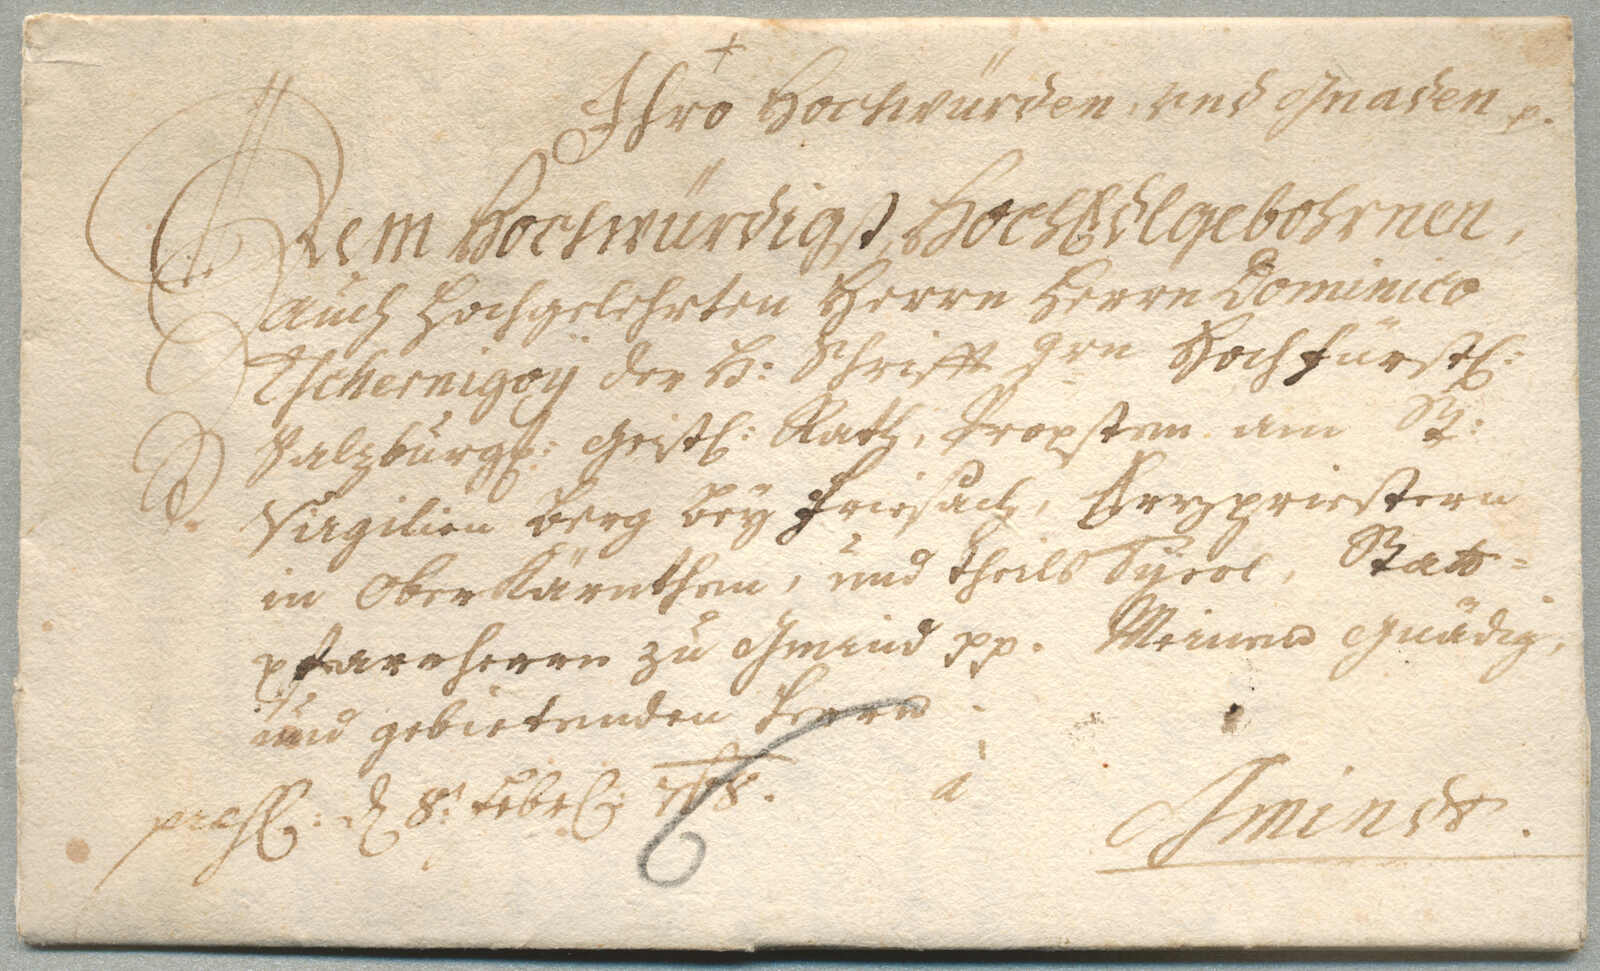 Ihro Hochwürden, und Gnaden p.
Dem Hochwürdigst, HochEdlgebohrnen,
auch Hochgelehrten Herrn Herrn Dominico
Tschernigoÿ der H: Schrifft Hochfürstl:
Salzburg: Geistl: Rath, Propsten am St:
Virgilien Berg beÿ Friesach, Erzpriestern
in OberKärnthen, und theils Tÿrol, Statt=
pfarrherrn zu Gmünd pp. Meinen Gnädig,
und gebietenden Herrn.
praes: d 8t: Febr: à
Gmindt.
6